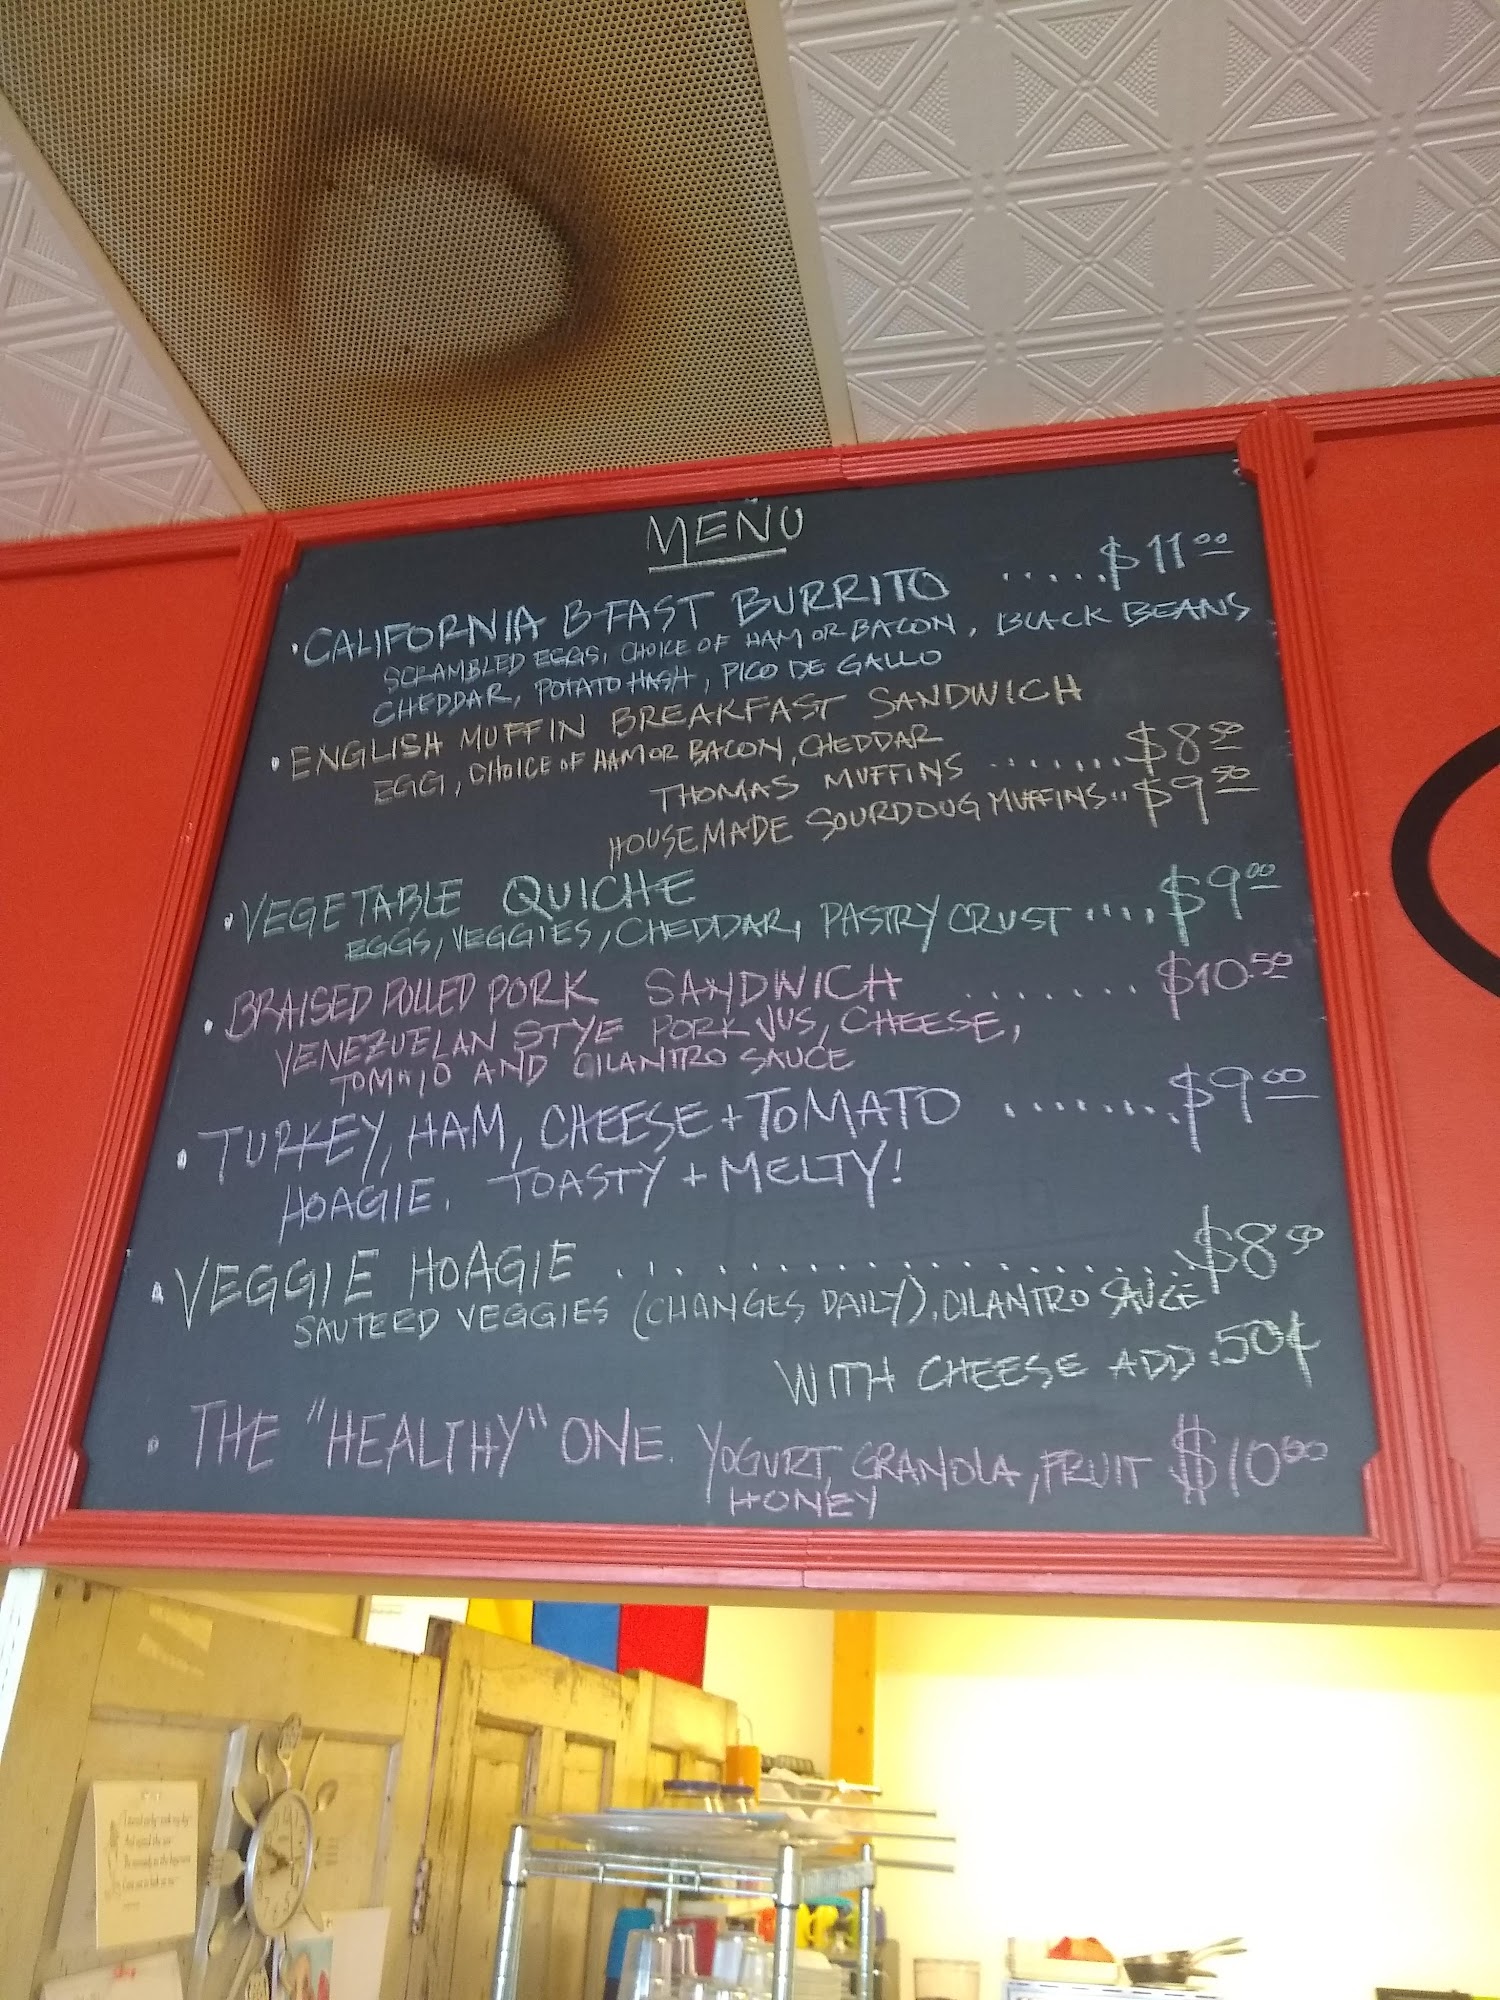 MENU
• CALIFORNIA B-FAST BURRITO ..... $11.00
SCRAMBLED EGGS, CHOICE OF HAM OR BACON, BLACK BEANS
CHEDDAR, POTATO HASH, PICO DE GALLO
• ENGLISH MUFFIN BREAKFAST SANDWICH
EGG, CHOICE OF HAM OR BACON, CHEDDAR
THOMAS MUFFINS ....... $8.50
HOUSEMADE SOURDOUG MUFFINS.. $9.50
• VEGETABLE QUICHE
EGGS, VEGGIES, CHEDDAR, PASTRY CRUST .... $9.00
• BRAISED PULLED PORK SANDWICH ....... $10.50
VENEZUELAN STYE PORK JUS, CHEESE,
TOMATO AND CILANTRO SAUCE
• TURKEY, HAM, CHEESE + TOMATO ........ $9.00
HOAGIE. TOASTY + MELTY!
• VEGGIE HOAGIE .................. $8.50
SAUTEED VEGGIES (CHANGES DAILY), CILANTRO SAUCE
WITH CHEESE ADD .50¢
• THE "HEALTHY" ONE. YOGURT, GRANOLA, FRUIT $10.00
HONEY